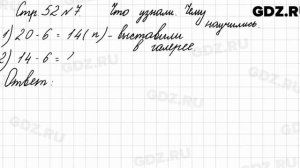 GDZ.RU
Стр. 52 №7. Что узнали. Чему
научились
1) 20 - 6 = 14 (п) - выставили
в галерее
2) 14 - 6 = ?
Ответ:
GDZ.RU